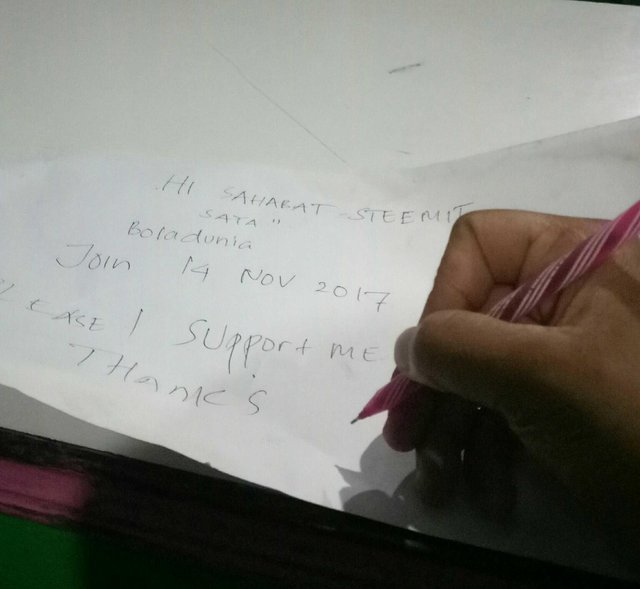 HI SAHABAT-STEEMIT
SAYA"
Boladunia
Join 14 NOV 2017
PLEASE | SUpport ME
THANKS